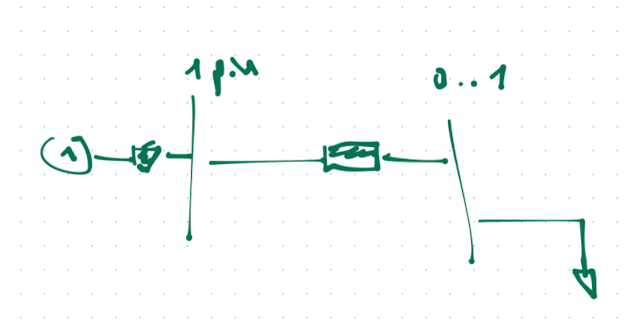 1 p.u
0..1
(1)